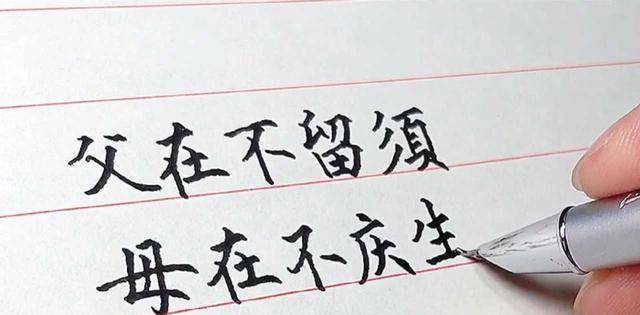 父在不留須
母在不庆生